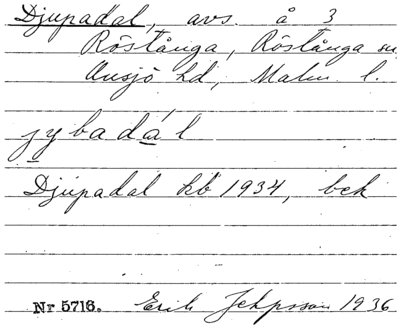 Djupadal, avs. å 3
Röstånga, Röstånga sn,
Onsjö hd, Malm. l.
jybadál
Djupadal kb 1934, bek
Nr 5716. Erik Jeppsson 1936